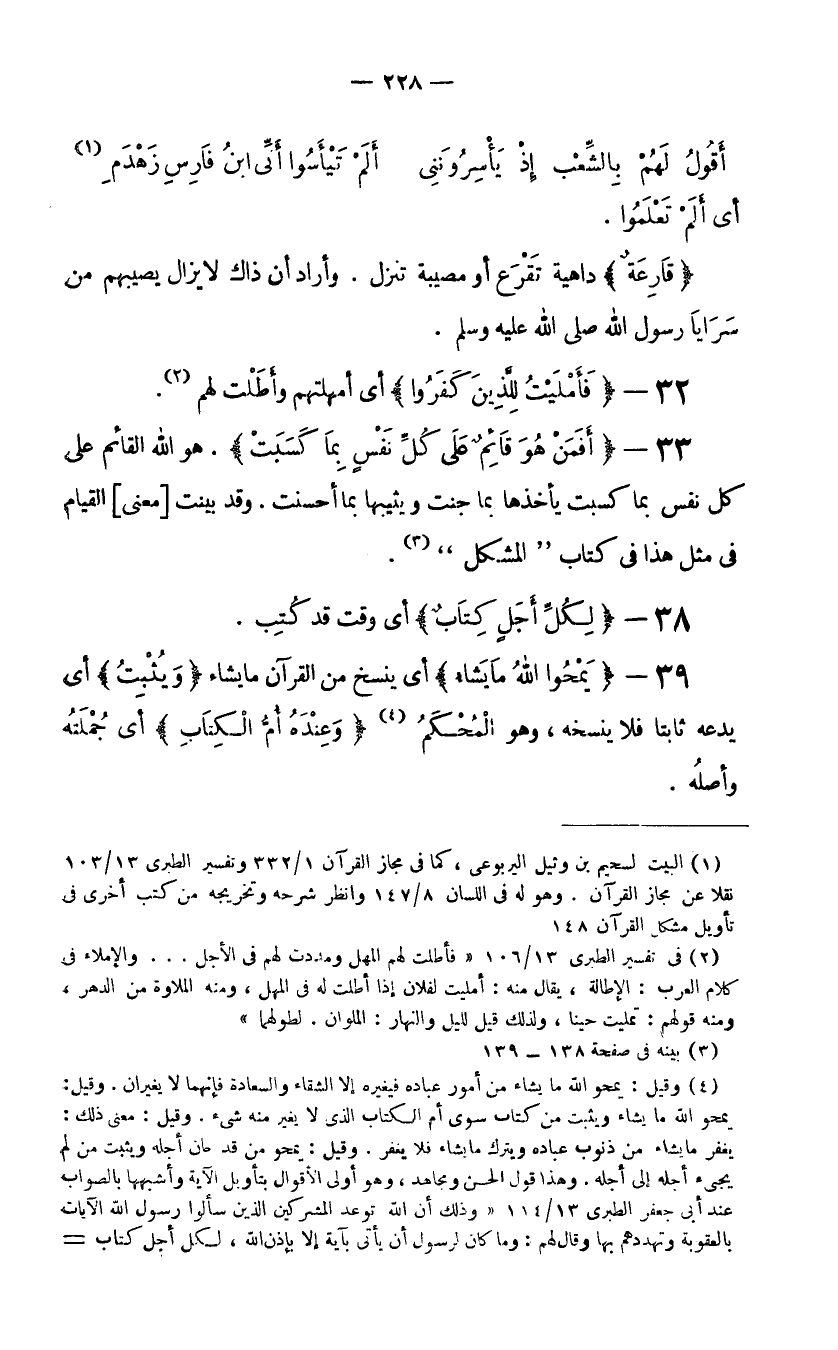 — ٢٢٨ —
أَقُولُ لَهُمْ بِالشِّعْبِ إِذْ يَأْسِرُونَنِى أَلَمْ تَيْأَسُوا أَنِّى ابنُ فَارِسِ زَهْدَمِ (١)
أى أَلَمْ تَعْلَمُوا .
﴿ قَارِعَةٌ ﴾ داهية تَقْرَع أو مصيبة تنزل . وأراد أن ذاك لايزال يصيبهم من
سَرَايَا رسول الله صلى الله عليه وسلم .
٣٢ — ﴿ فَأَمْلَيْتُ لِلَّذِينَ كَفَرُوا ﴾ أى أمهلتهم وأَطَلْت لهم (٢).
٣٣ — ﴿ أَفَمَنْ هُوَ قَائِمٌ عَلَى كُلِّ نَفْسٍ بِمَا كَسَبَتْ ﴾ . هو الله القائم على
كل نفس بما كسبت يأخذها بما جنت ويثيبها بما أحسنت . وقد بينت [معنى] القيام
فى مثل هذا فى كتاب ” المشكل “ (٣) .
٣٨ — ﴿ لِكُلِّ أَجَلٍ كِتَابٌ ﴾ أى وقت قد كُتِب .
٣٩ — ﴿ يَمْحُوا اللهُ مَايَشَاء ﴾ أى ينسخ من القرآن مايشاء ﴿ وَيُثْبِتُ ﴾ أى
يدعه ثابتا فلا ينسخه ، وهو الْمُحْكَمُ (٤) ﴿ وَعِنْدَهُ أُمُّ الْكِتَابِ ﴾ أى جُمْلَتُه
وأصلُه .
(١) البيت لسحيم بن وثيل اليربوعى ، كما فى مجاز القرآن ٣٣٢/١ وتفسير الطبرى ١٠٣/١٣
نقلا عن مجاز القرآن . وهو له فى اللسان ١٤٧/٨ وانظر شرحه وتخريجه من كتب أخرى فى
تأويل مشكل القرآن ١٤٨
(٢) فى تفسير الطبرى ١٠٦/١٣ « فأطلت لهم المهل ومددت لهم فى الأجل . . . والإملاء فى
كلام العرب : الإطالة ، يقال منه : أمليت لفلان إذا أطلت له فى المهل ، ومنه الملاوة من الدهر ،
ومنه قولهم : تمليت حينا ، ولذلك قيل لليل والنهار : الملوان . لطولهما »
(٣) بينه فى صفحة ١٣٨ – ١٣٩
(٤) وقيل : يمحو الله ما يشاء من أمور عباده فيغيره إلا الشقاء والسعادة فإنهما لا يغيران . وقيل:
يمحو الله ما يشاء ويثبت من كتاب سوى أم الكتاب الذى لا يغير منه شىء . وقيل : معنى ذلك :
يغفر مايشاء من ذنوب عباده ويترك مايشاء فلا يغفر . وقيل : يمحو من قد حان أجله ويثبت من لم
يجىء أجله إلى أجله . وهذا قول الحسن ومجاهد ، وهو أولى الأقوال بتأويل الآية وأشبهها بالصواب
عند أبى جعفر الطبرى ١١٤/١٣ « وذلك أن الله توعد المشركين الذين سألوا رسول الله الآيات
بالعقوبة وتهددهم بها وقال لهم : وما كان لرسول أن يأتى بآية إلا بإذن الله ، لكل أجل كتاب =